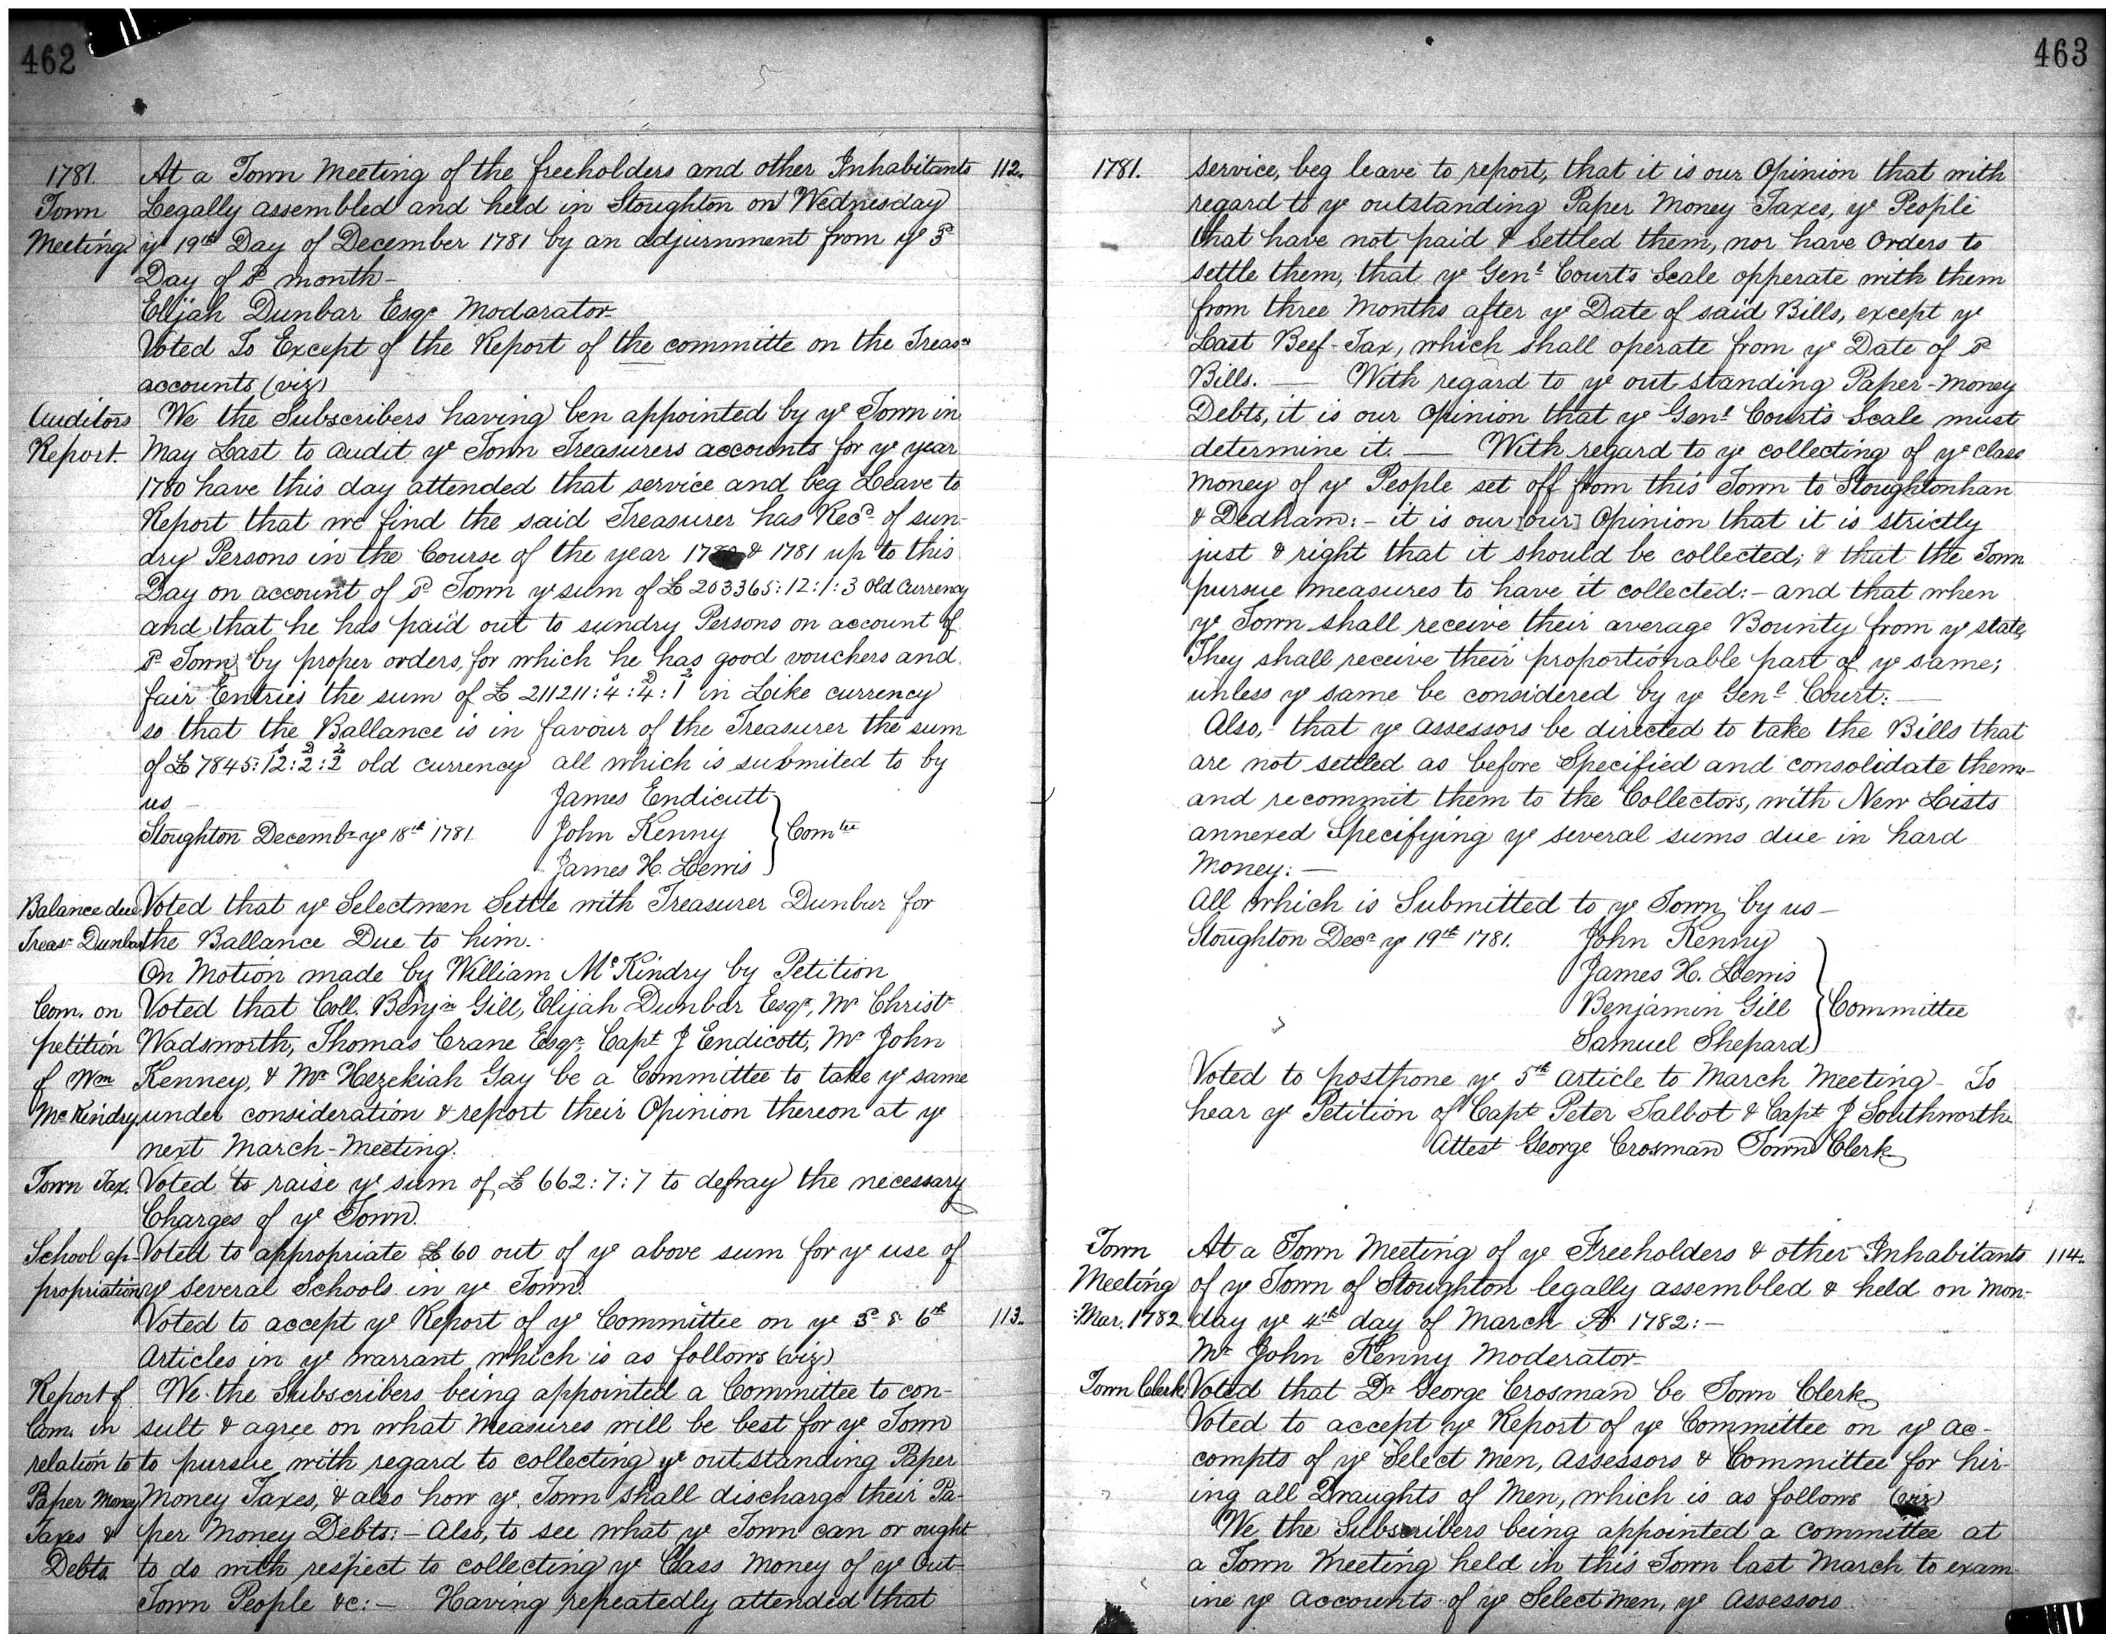 462
1781.
Town
Meeting
At a Town Meeting of the freeholders and other Inhabitants 112.
Legally assembled and held in Stoughton on Wednesday
ye 19th Day of December 1781 by an adjurnment from ye 3d
Day of sd month-
Elijah Dunbar Esqr Modarator
Voted To Except of the Report of the committe on the Treasrs
accounts (viz)
Auditors
Report.
We the Subscribers having ben appointed by ye Town in
May Last to audit ye Town Treasurers accounts for ye year
1780 have this day attended that service and beg Leave to
Report that we find the said Treasurer has Recd of sun-
dry Persons in the Course of the year & 1781 up to this
Day on account of sd Town ye sum of £ 203365:12:1:3 old Currency
and that he has paid out to sundry Persons on account of
sd Town by proper orders, for which he has good vouchers and
fair Entries the sum of £ 211211:4:4:1 in Like currency
so that the Ballance is in favour of the Treasurer the sum
of £ 7845:12:2:2 old currency all which is submited to by
us -
James Endicutt
Stoughton Decembr ye 18th 1781 John Kenny } Comtee
James H. Lewis
Balance due
Treasr Dunbar
Voted that ye Selectmen Settle with Treasurer Dunbur for
the Ballance Due to him.
On Motion made by William McKindry by Petition
Com. on
petition
of Wm
McKindry
Voted that Coll. Benjn Gill, Elijah Dunbar Esqr, Mr Christr
Wadsworth, Thomas Crane Esqr, Capt J Endicott, Mr John
Kenney, & Mr Hezekiah Gay be a Committee to take ye same
under consideration & report their Opinion thereon at ye
next March-Meeting.
Town Tax.
Voted to raise ye sum of £ 662:7:7 to defray the necessary
Charges of ye Town.
School ap-
propriation
Voted to appropriate £ 60 out of ye above sum for ye use of
ye several Schools in ye Town.
Voted to accept ye Report of ye Committee on ye 3d & 6th 113.
Articles in ye warrant which is as follows (viz)
Report of
Com. in
relation to
Paper Money
Taxes &
Debts
We the Subscribers being appointed a Committee to con-
sult & agree on what Measures will be best for ye Town
to pursue with regard to collecting ye outstanding Paper
Money Taxes, & also how ye Town shall discharge their Pa-
per Money Debts:- Also, to see what ye Town can or ought
to do with respect to collecting ye Class Money of ye Out-
Town People &c:- Having repeatedly attended that
463
1781.
service, beg leave to report, that it is our Opinion that with
regard to ye outstanding Paper Money Taxes, ye People
that have not paid & Settled them, nor have Orders to
settle them, that ye Genl Courts Scale opperate with them
from three Months after ye Date of said Bills, except ye
Last Beef-Tax, which shall operate from ye Date of sd
Bills. — With regard to ye out standing Paper-money
Debts, it is our Opinion that ye Genl Court's Scale must
determine it. — With regard to ye collecting of ye class
Money of ye People set off from this Town to Stoughtonhan
& Dedham:- it is our [our] Opinion that it is strictly
just & right that it should be collected; & that the Town
pursue measures to have it collected:- and that when
ye Town shall receive their average Bounty from ye state,
They shall receive their proportionable part of ye same;
unless ye same be considered by ye Genl Court:—
Also,- that ye assessors be directed to take the Bills that
are not settled as before Specified and consolidate them-
and recommit them to the Collectors, with New Lists
annexed Specifying ye several sums due in hard
Money:—
All which is Submitted to ye Town by us-
Stoughton Decr ye 19th 1781. John Kenny
James H. Lewis
Benjamin Gill } Committee
Samuel Shepard
Voted to postpone ye 5th Article to March Meeting- To
hear ye Petition of Capt Peter Talbot & Capt J Southworth
Attest George Crosman Town Clerk
Town
Meeting
Mar. 1782
At a Town Meeting of ye Freeholders & other Inhabitants 114.
of ye Town of Stoughton legally assembled & held on Mon-
day ye 4th day of March AD 1782:-
Mr John Kenny Moderator
Town Clerk
Voted that Dr George Crosman be Town Clerk
Voted to accept ye Report of ye Committee on ye ac-
compts of ye Select men, Assessors & Committee for hir-
ing all Draughts of Men, which is as follows (viz)
We the Subscribers being appointed a committee at
a Town Meeting held in this Town last March to exam-
ine ye accounts of ye Selectmen, ye Assessors